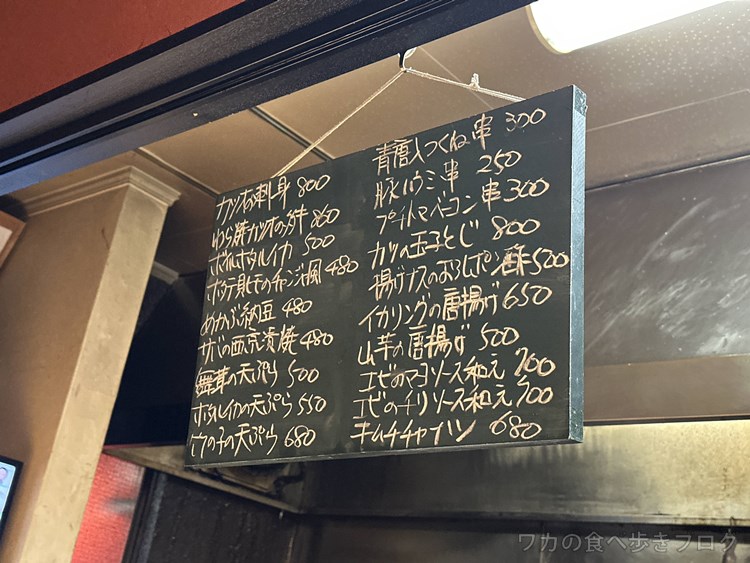 カツオの刺身 800
わら焼カツオのタタキ 860
ボイルホタルイカ 500
ホタテ貝ヒモのチャンジャ風 480
めかぶ納豆 480
サバの西京漬焼 480
舞茸の天ぷら 500
ホタルイカの天ぷら 550
竹の子の天ぷら 680
青唐入つくね串 300
豚ハラミ串 250
プチトマトベーコン串 300
カツの玉子とじ 800
揚げナスのおろしポン酢 500
イカリングの唐揚げ 650
山芋の唐揚げ 500
エビのマヨソース和え 700
エビのチリソース和え 700
キムチチャーハン 680
ワカの食べ歩きブログ